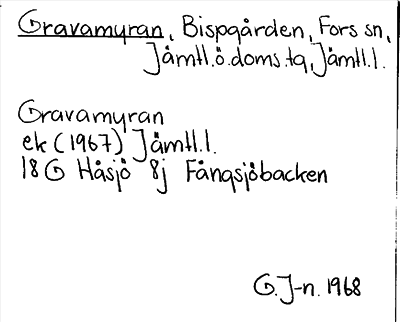 Gravamyran, Bispgården, Fors sn,
Jämtl.ö.doms.tg, Jämtl.l.
Gravamyran
ek (1967) Jämtl.l.
18G Håsjö 8j Fångsjöbacken
G. J-n. 1968